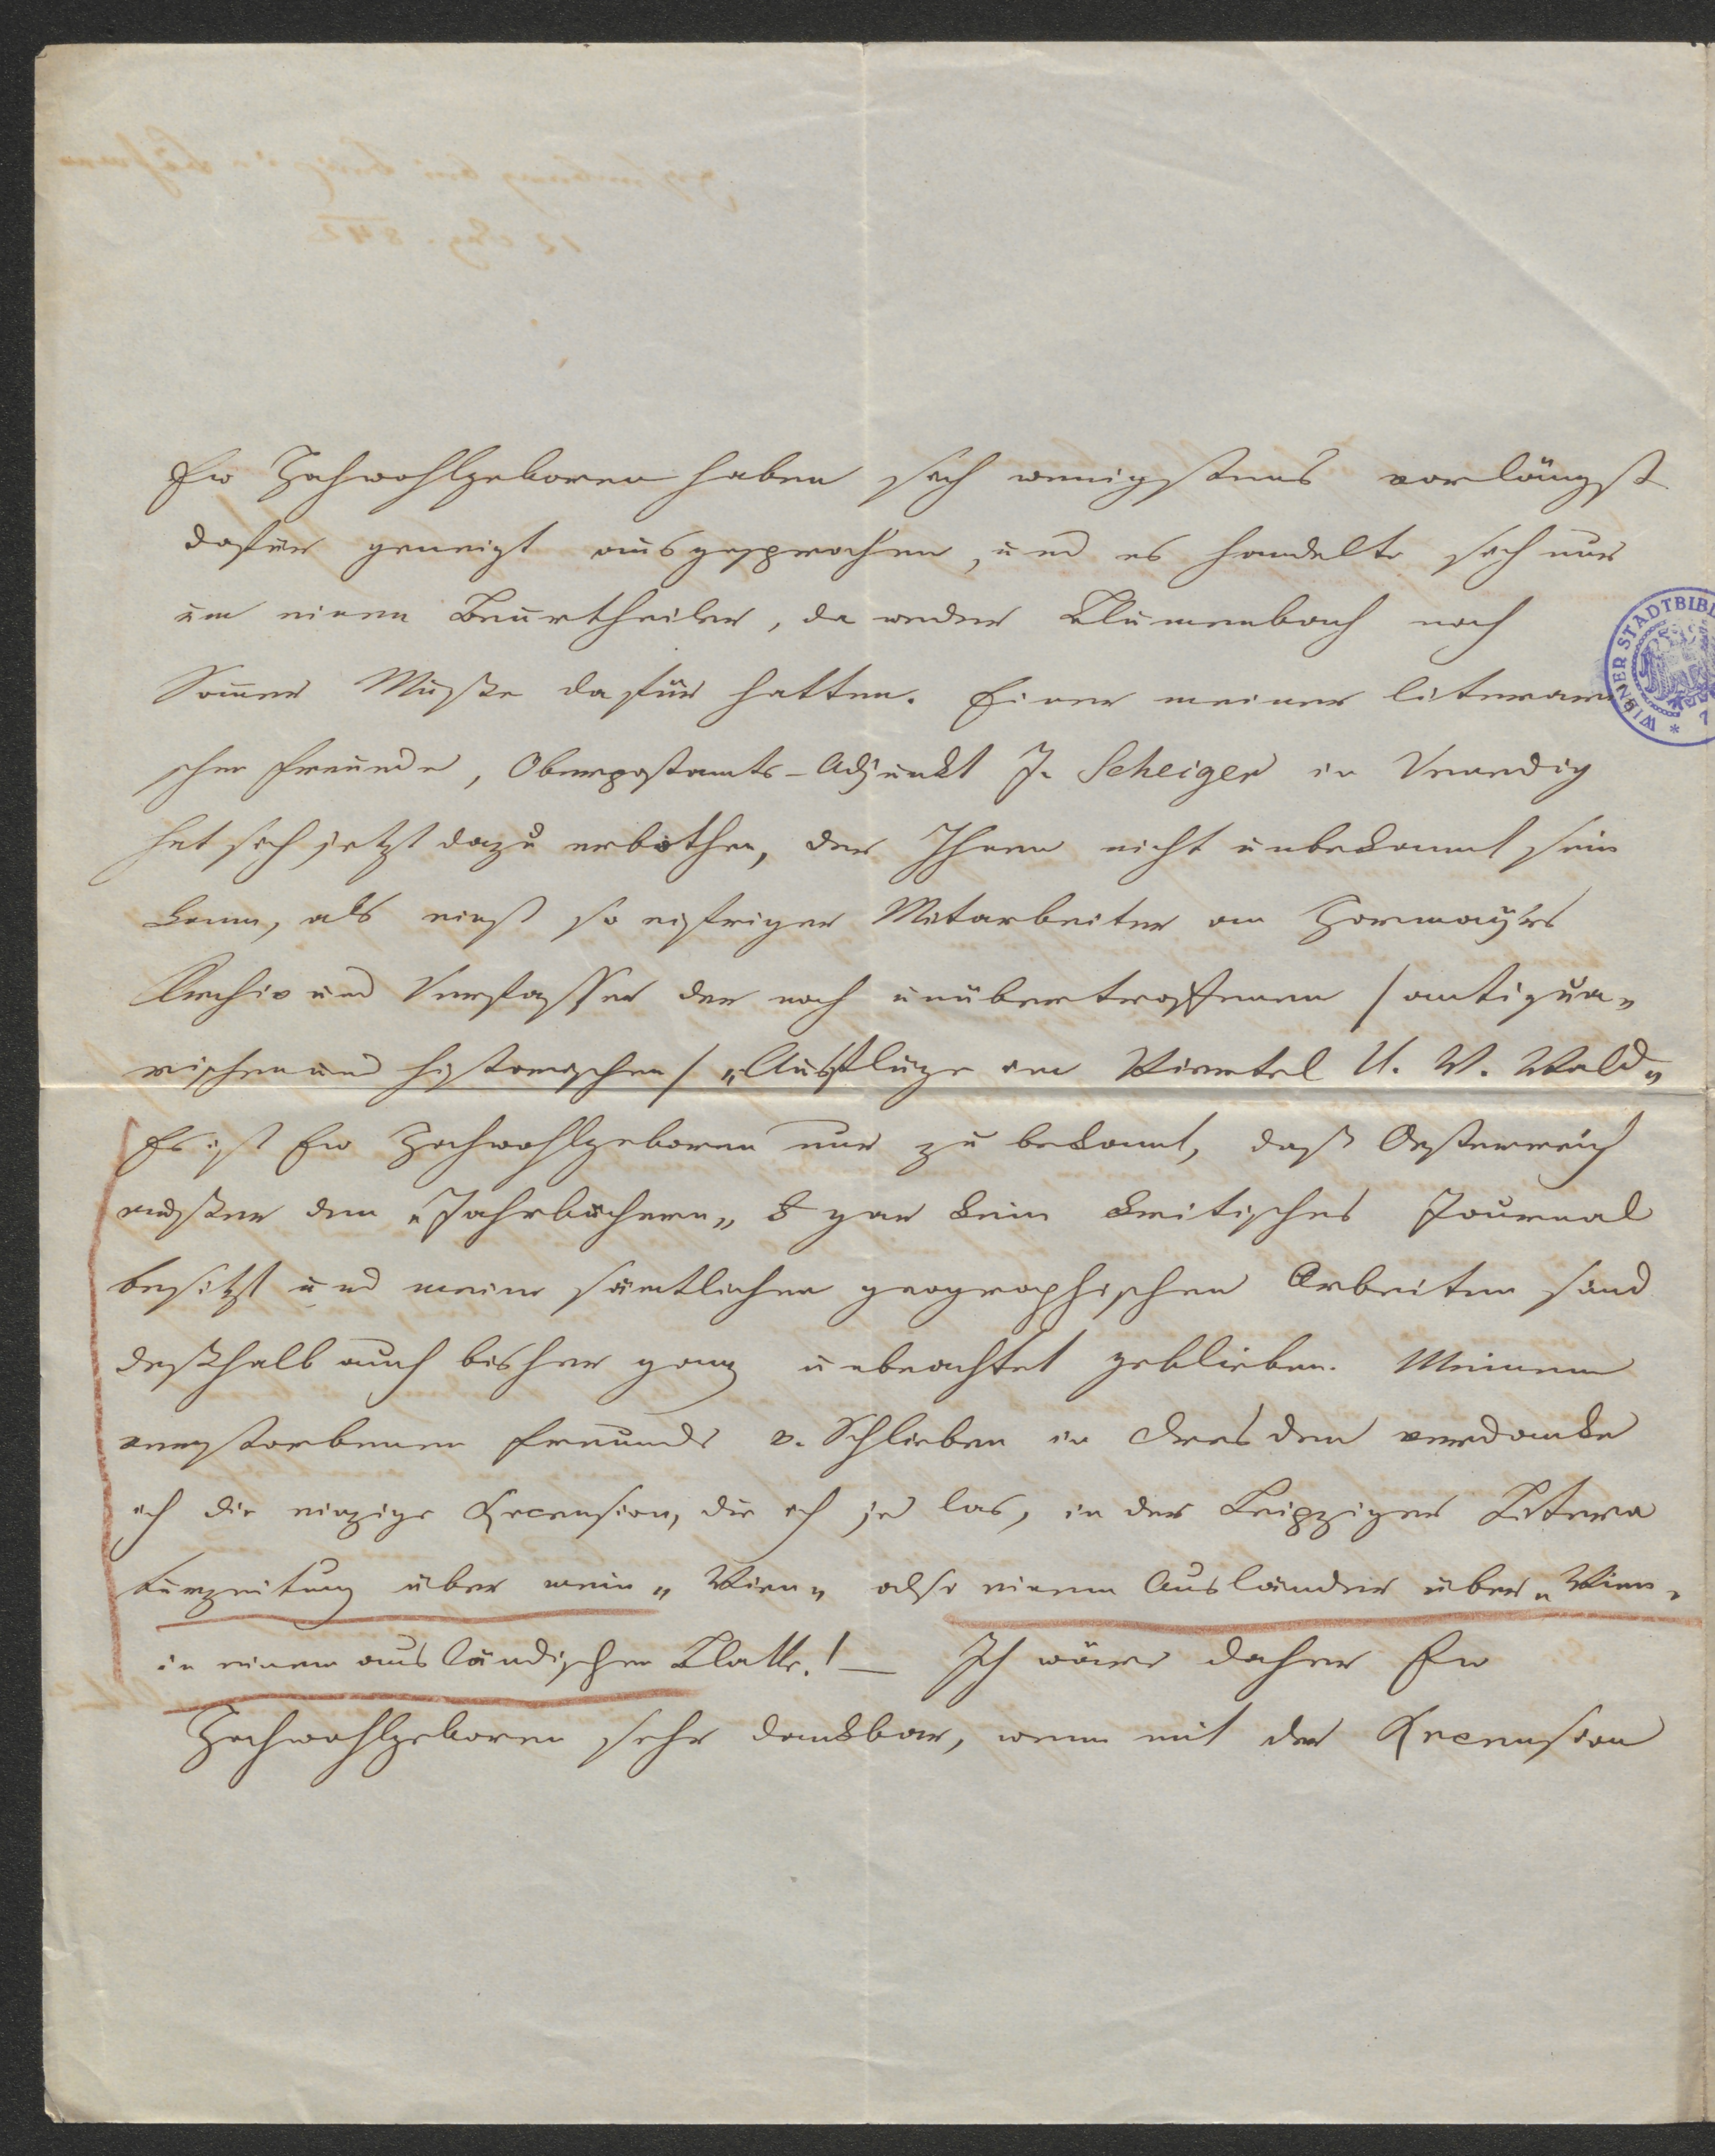 Ew Hochwohlgeboren haben sich wenigstens vorlängst
dafür geneigt ausgesprochen, und es handelte sich nur
um einen Beurtheiler, da weder Blumenbach noch
Som̅er Muße dafür hatten. Einer meiner literari
schen Freunde, Oberpostamts-Adjunkt J. Scheiger in Venedig
hat sich jetzt dazu erbothen, der Ihnen nicht unbekannt sein
kann, als einst so eifriger Mitarbeiter am Hormayrs
Archiv und Verfasser der noch unübertroffenen / antiqua„
rischen und historischen / „Ausflüge im Viertel U. W. Wald„
Es ist Ew Hochwohlgeboren nur zu bekannt, daß Oesterreich
außer den „Jahrbüchern„ gar kein kritisches Journal
besitzt und meine sämtlichen geographischen Arbeiten sind
deßhalb auch bisher ganz unbeachtet geblieben. Meinem
verstorbenen Freunde v. Schlieben in Dresden verdanke
ich die einzige Recension, die ich je las, in der Leipziger Litera
turzeitung über mein „Wien„ also einem Ausländer über „Wien„
in einem ausländischen Blatte! — Ich wäre daher Ew
Hochwohlgeboren sehr dankbar, wenn mit der Recension
WIENER STADTBIBL